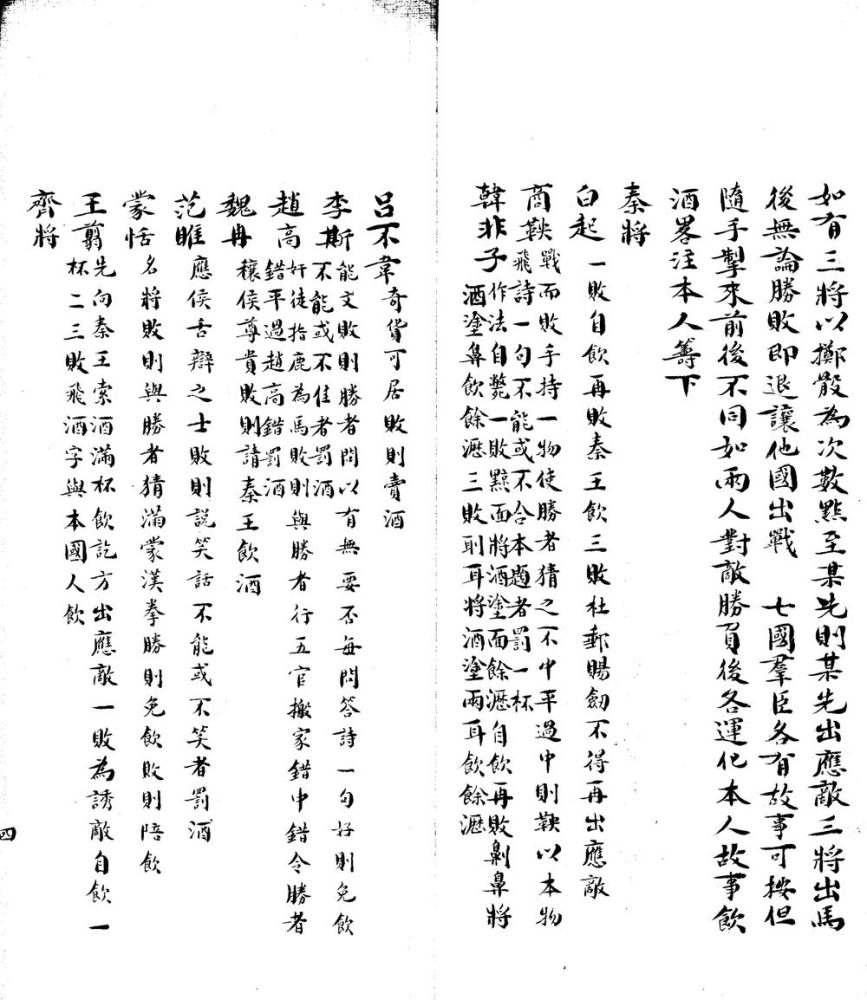 如有三將以擲骰為次數點至某先則某先出應敵三將出馬
後無論勝敗即退讓他國出戰　七國羣臣各有故事可按但
隨手掣來前後不同如兩人對敵勝負後各運化本人故事飲
酒畧注本人籌下
秦將
白起　一敗自飲再敗秦王飲三敗杜郵賜劒不得再出應敵
商鞅　戰而敗手持一物使勝者猜之不中平過中則鞅以本物
飛詩一句不能或不合本題者罰一杯
韓非子　作法自斃一敗黥面將酒塗面餘瀝自飲再敗劓鼻將
酒塗鼻飲餘瀝三敗刵耳將酒塗兩耳飲餘瀝
呂不韋　奇貨可居敗則賣酒
李斯　能文敗則勝者問以有無要否每問答詩一句好則免飲
不能或不佳者罰酒
趙高　奸徒指鹿為馬敗則與勝者行五官搬家錯中錯令勝者
錯平過趙高錯罰酒
魏冉　穰侯尊貴敗則請秦王飲酒
范睢　應侯舌辯之士敗則説笑話不能或不笑者罰酒
蒙恬　名將敗則與勝者猜滿蒙漢拳勝則免飲敗則陪飲
王翦　先向秦王索酒滿杯飲訖方出應敵一敗為誘敵自飲一
杯二三敗飛酒字與本國人飲
齊將
四